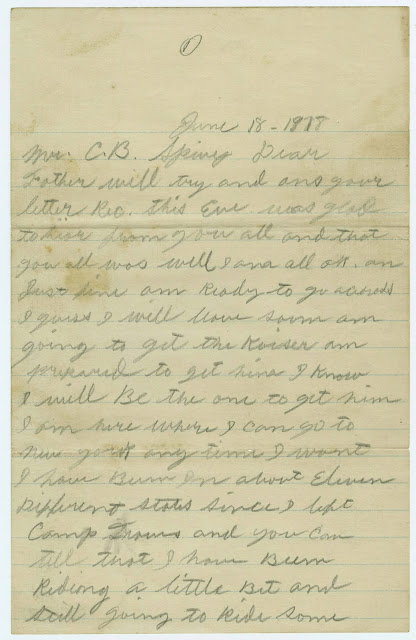 1
June 18 - 1918
Mr. C.B. Spivey Dear
Father will try and ans your
letter Rec. this Eve was glad
to hear from you all and that
you all was well I am all ok. am
Just fine am Ready to go across
I guess I will leave soon am
going to get the Kaiser am
prepared to get him I Know
I will Be the one to get him
I am here where I can go to
New york any time I want
I have Been In about Eleven
Different States since I left
Camp Travis and you can
tell that I have Been
Riding a little Bit and
still going to Ride some